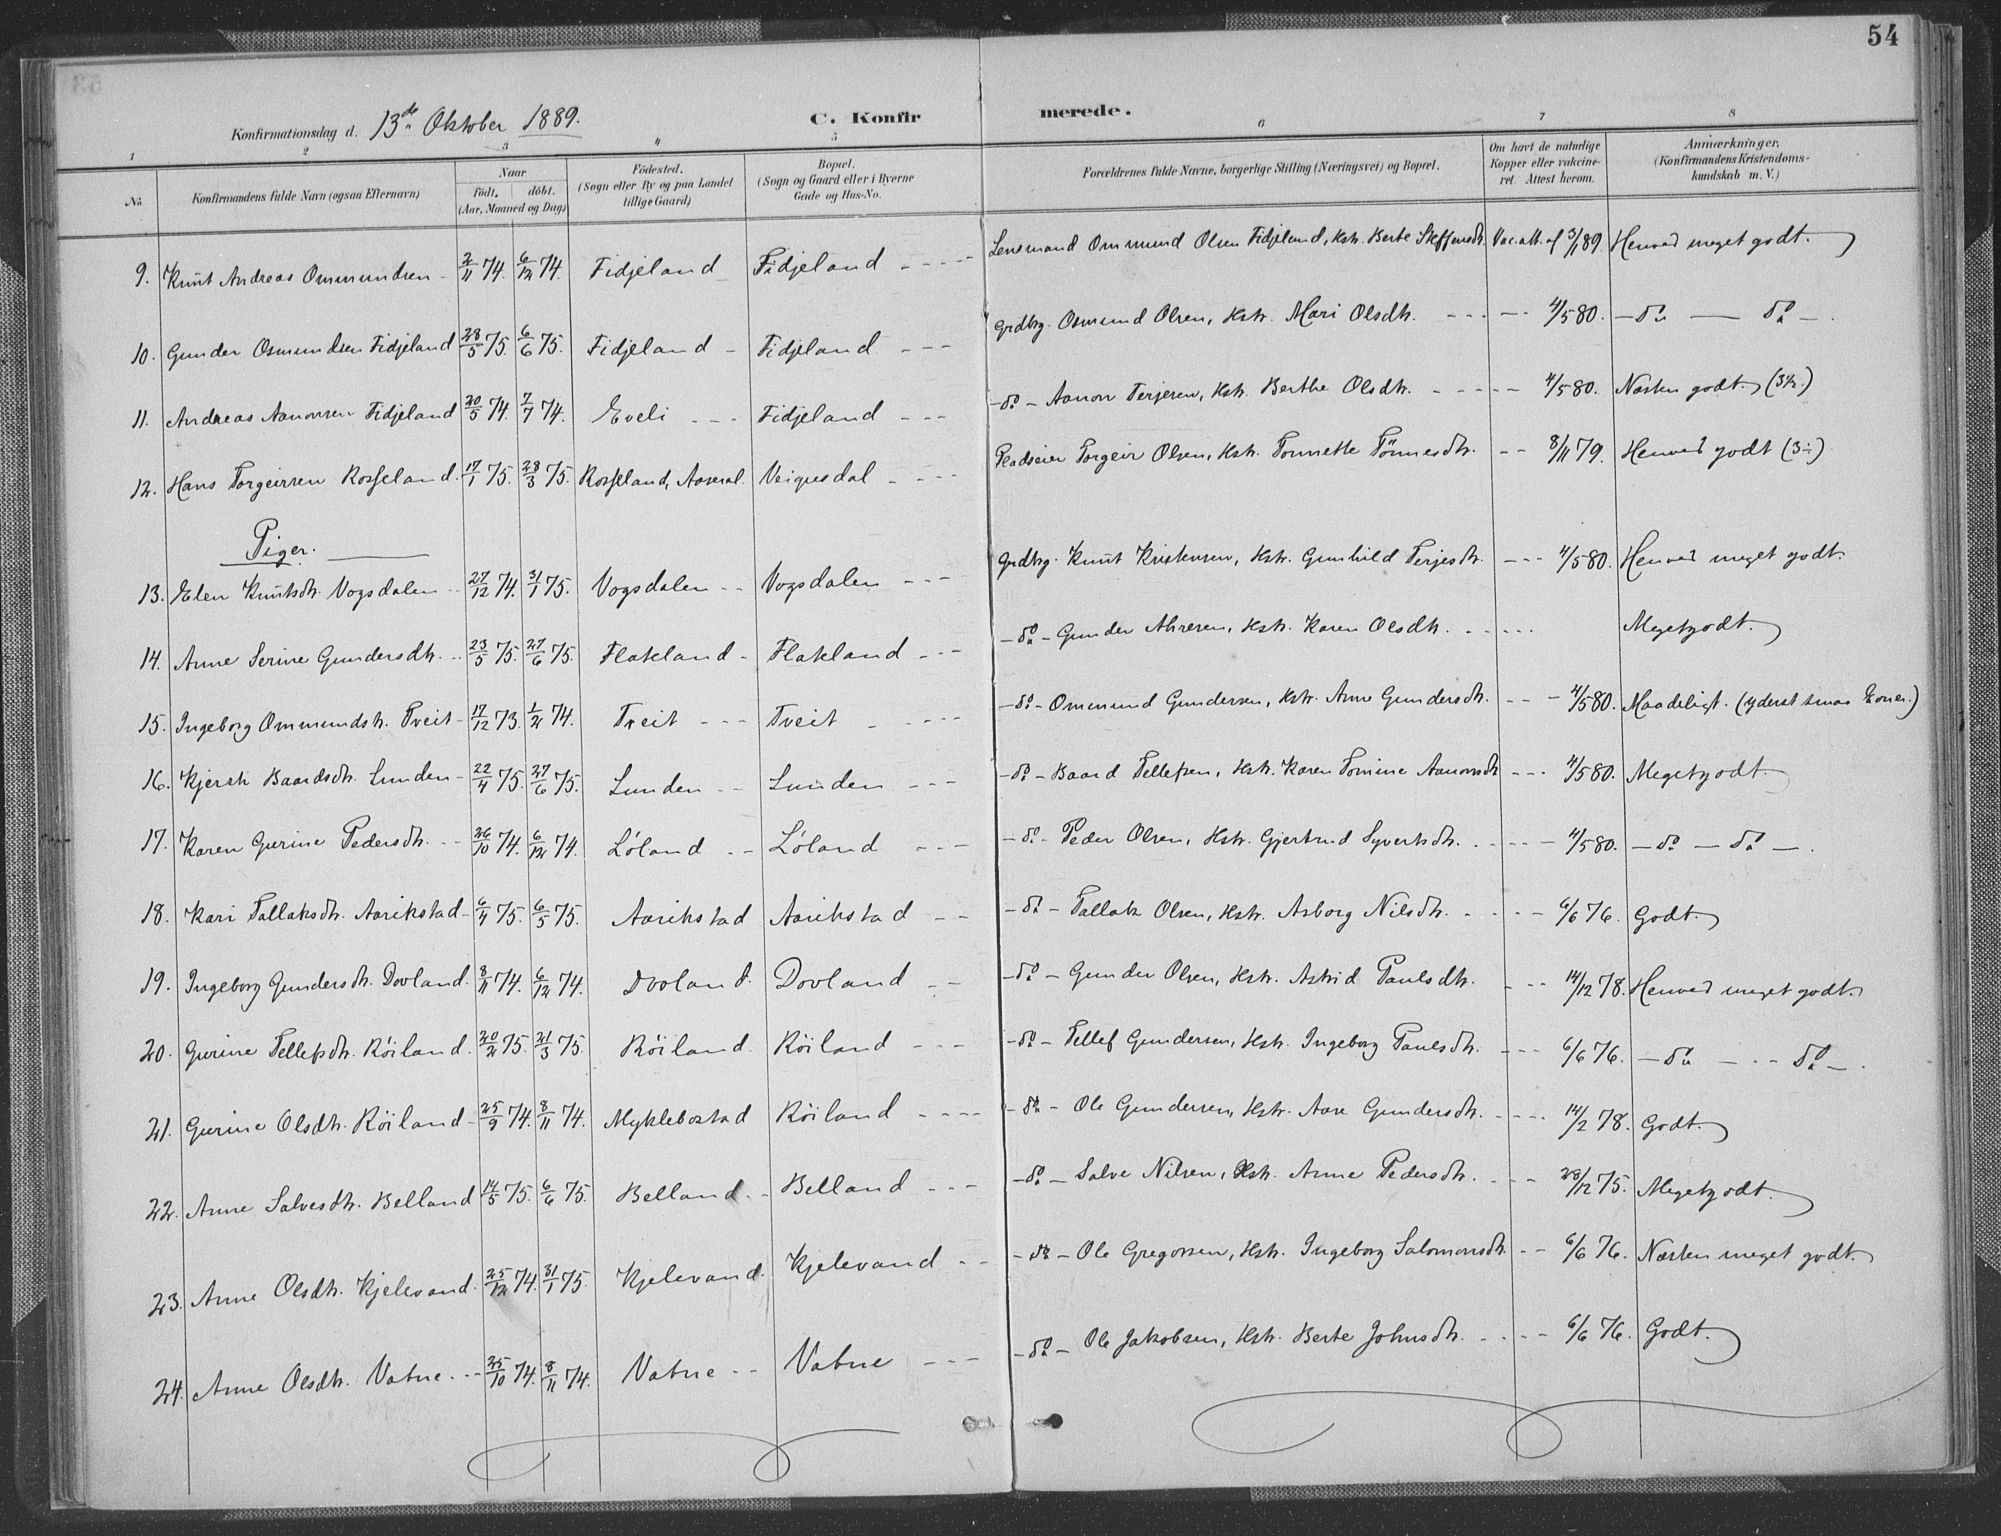 54
Konfirmationsdag d. 13de Oktober 1889.
C. Konfirmerede.
1 2 3 4 5 6 7 8
No
Konfirmandens fulde Navn (ogsaa Efternavn)
Naar
födt, döbt.
(Aar, Maaned og Dag)
Födested.
(Sogn eller By og paa Landet
tillige Gaard)
Bopæl.
(Sogn og Gaard eller i Byerne
Gade og Hus-No.
Forældrenes fulde Navne, borgerlige Stilling (Næringsvei) og Bopæl.
Om havt de naturlige
Kopper eller vakcine-
ret. Attest herom.
Anmærkninger.
(Konfirmandens Kristendoms-
kundskab m. V.)
9. Knut Andreas Ommundsen - 2/11 74. 6/12 74. Fidjeland - Fidjeland - - - - Lensmand Ommund Olsen Fidjeland, Hstr. Berte Steffensdtr. Vac. att. af 3/1 89. Henved meget godt.
10. Gunder Osmundsen Fidjeland 28/5 75. 6/6 75. Fidjeland - Fidjeland - - - Grdbrg. Osmund Olsen, Hstr. Mari Olsdtr. - - - - 4/5 80. - do - do - .
11. Andreas Aanonsen Fidjeland 20/5 74. 7/7 74. Eveli - - - Fidjeland - - - - do - Aanon Terjesen, Hstr. Berthe Olsdtr. - - - - 4/5 80. Næsten godt. (3½.)
12. Hans Torgeirsen Rosseland. 17/1 75. 28/3 75. Rosseland, Aaseral. Veigusdal - - - - Pladseier Torgeir Olsen, Hstr. Tonnette Tönnesdtr. - - 8/11 79. Henved godt (3÷)
Piger.
13. Elen Knutsdtr. Vogsdalen - - 27/12 74. 31/1 75. Vogsdalen - - Vogsdalen - - - Grdbrg. Knut Kristensen, Hstr. Gunhild Terjesdtr. - - - 4/5 80. Henved meget godt.
14. Anne Serine Gundersdtr. - - 23/5 75. 27/6 75. Flakland - Flakland - - - - do - Gunder Ahresen, Hstr. Karen Olsdtr. - - - - - Megetgodt.
15. Ingeborg Ommundsdtr. Tveit - 17/12 73. 1/2 74. Tveit - - - Tveit - - - - - do - Ommund Gundersen, Hstr. Anne Gundersdtr. - - - 4/5 80. Maadeligt. (yderst smaa Evner.)
16. Kjersti Baardsdtr. Lunden - 22/4 75. 27/6 75. Lunden - - Lunden - - - - do - Baard Tellefsen, Hstr. Karen Tomine Aanonsdtr. - - - 4/5 80. Megetgodt.
17. Karen Gurine Pedersdtr. - - 26/10 74. 6/12 74. Lóland - - Lóland - - - - do - Peder Olsen, Hstr. Gjertrud Syvertsdtr. - - - - - 4/5 80. - do - do - .
18. Kari Tallaksdtr. Aarikstad - 6/4 75. 6/5 75. Aarikstad Aarikstad - - - do - Tallak Olsen, Hstr. Asborg Nilsdtr. - - - - 6/6 76. Godt.
19. Ingeborg Gundersdtr. Dovland. 8/11 74. 6/12 74. Dovland. Dovland - - - do - Gunder Olsen, Hstr. Astrid Paulsdtr. - - - 14/12 78. Henved meget godt.
20. Gurine Tellefsdtr. Röiland. 20/2 75. 21/3 75. Röiland. Röiland - - - - do - Tellef Gundersen, Hstr. Ingeborg Paulsdtr. - - - 6/6 76. - do - - - do - .
21. Gurine Olsdtr. Röiland - 25/9 74. 8/11 74. Myklebostad Röiland - - - - - do - Ole Gundersen, Hstr. Aase Gundersdtr. - - - - 14/2 78. Godt.
22. Anne Salvesdtr. Belland 14/5 75. 6/6 75. Belland - - Belland - - - - do - Salve Nilsen, Hstr. Anne Pedersdtr. - - - 28/12 75. Megetgodt.
23. Anne Olsdtr. Kjelevand. 25/12 74. 31/1 75. Kjelevand. Kjelevand - - - do - Ole Gregorsen, Hstr. Ingeborg Salomonsdtr. - - 6/6 76. Næsten meget godt.
24. Anne Olsdtr. Vatne. - - 25/10 74. 8/11 74. Vatne - - Vatne - - - - do - Ole Jakobsen, Hstr. Berte Johnsdtr. - - - - 6/6 76. Godt.